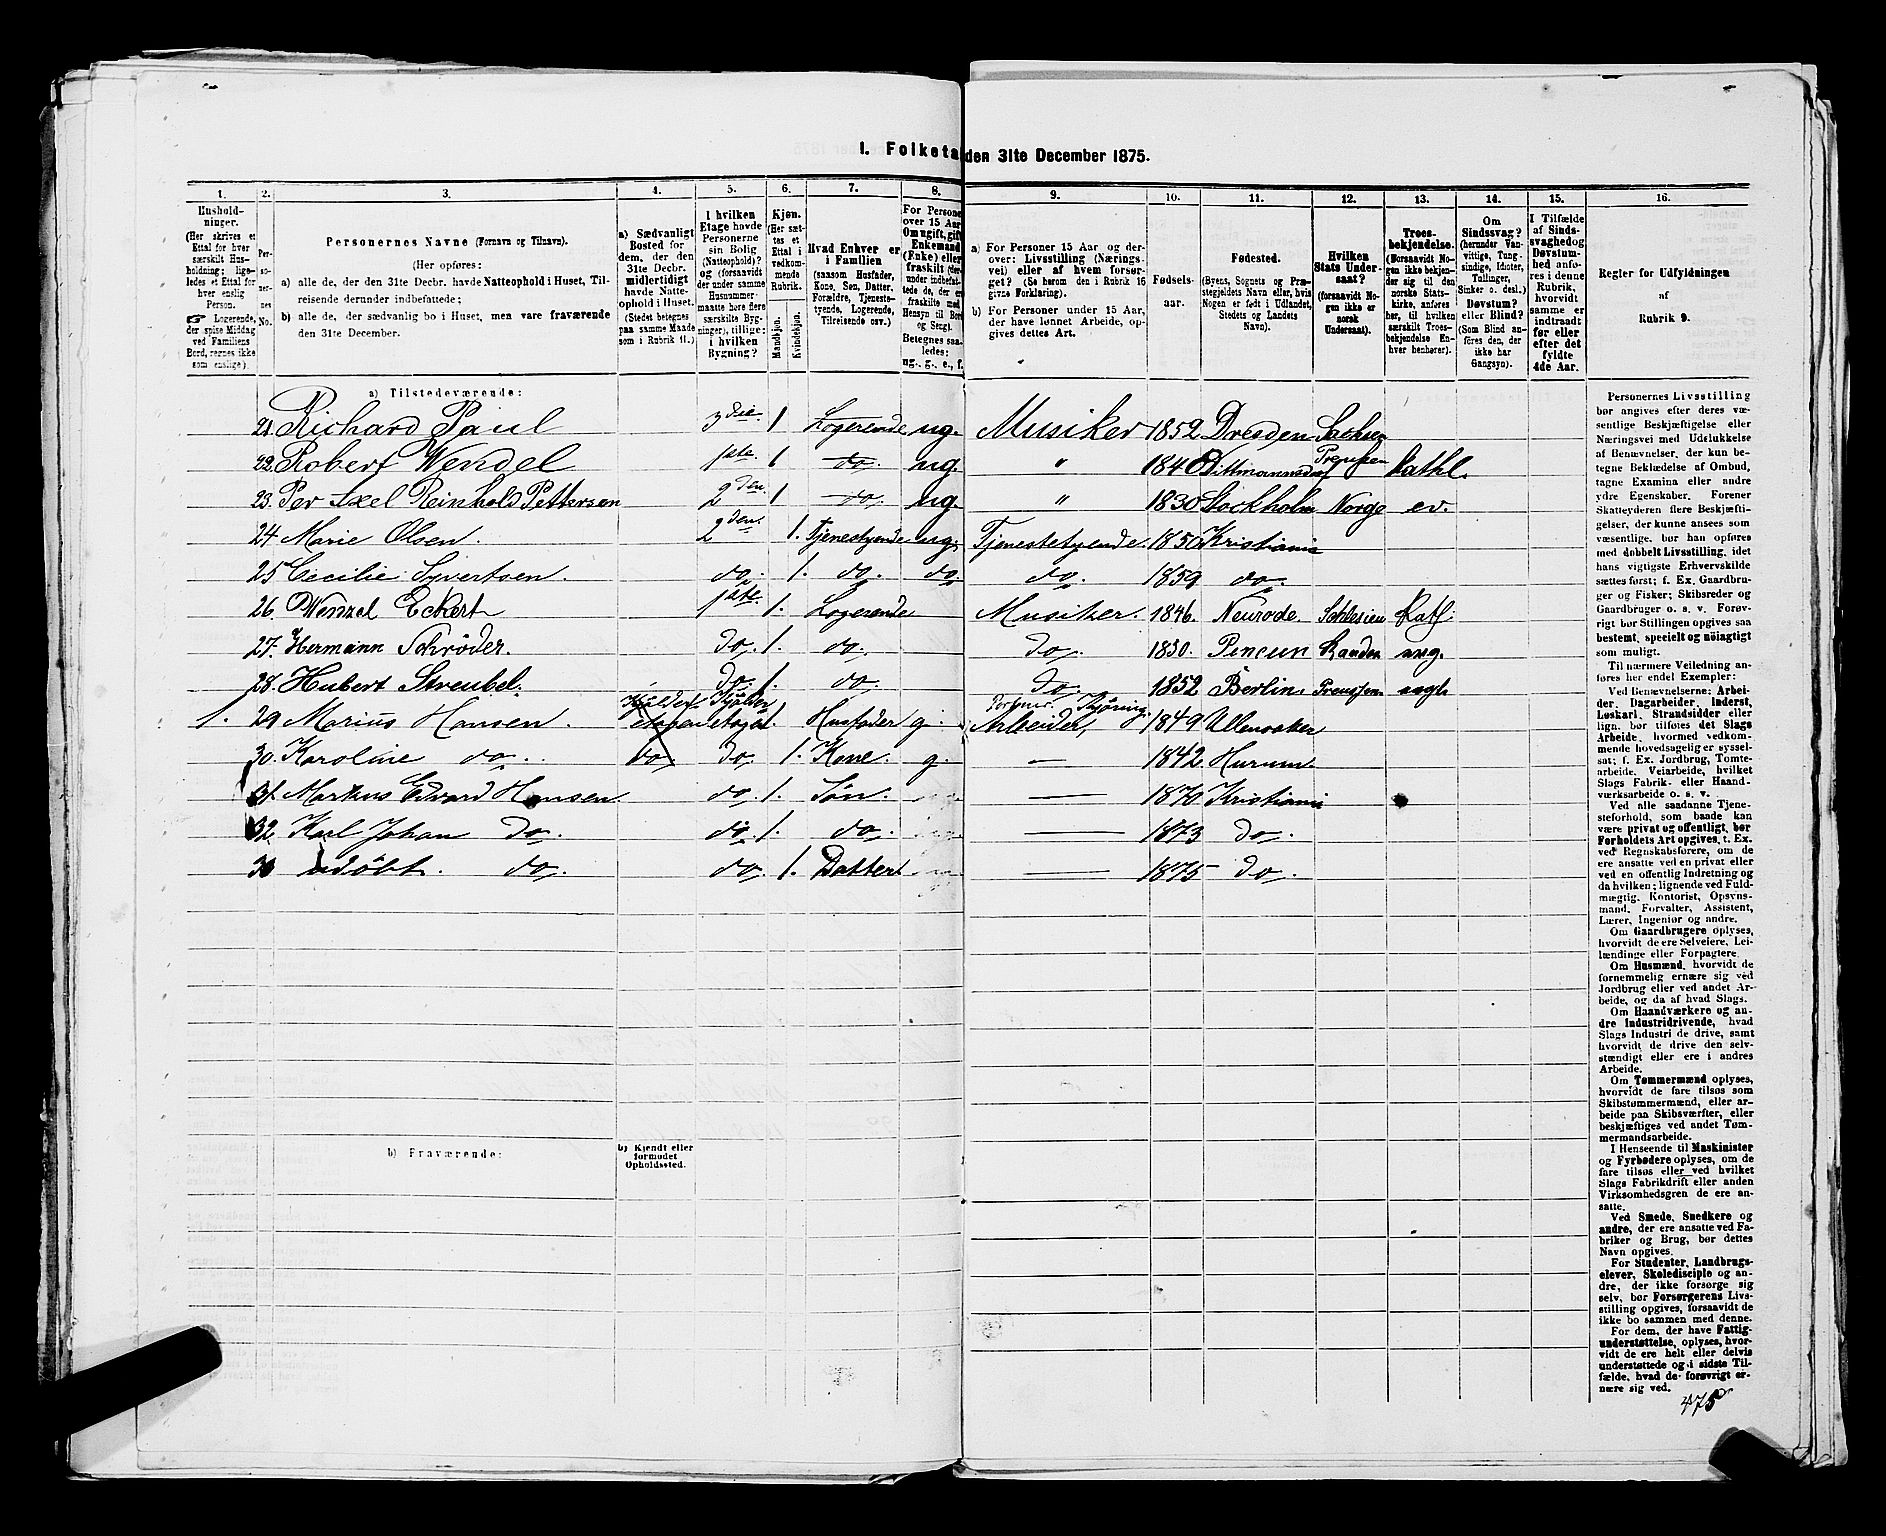 1. Folketal den 31te December 1875.
1. 2. 3. 4. 5. 6. 7. 8. 9. 10. 11. 12. 13. 14. 15. 16.
Hushold-
ninger.
(Her skrives et
Ettal for hver
særskilt Hus-
holdning; lige-
ledes et Ettal for
hver enslig
Person.
☞ Logerende,
der spise Middag
ved Familiens
Bord, regnes ikke
som enslige).
Per-
so-
ner-
nes
No.
Personernes Navne (Fornavn og Tilnavn).
(Her opføres:
a) alle de, der den 31te Decbr. havde Natteophold i Huset, Til-
reisende derunder indbefattede;
b) alle de, der sædvanlig bo i Huset, men vare fraværende
den 31te December.
a) Sædvanligt
Bosted for
dem, der den
31te Decbr.
midlertidigt
havde Natte-
ophold i Huset.
(Stedet betegnes
paa samme Maade
som i Rubrik 11.)
I hvilken
Etage havde
Personerne
sin Bolig
(Natteophold)?
og (forsaavidt
der under samme
Husnummer
maatte høre flere
særskilte Byg-
ninger), tillige:
i hvilken
Bygning?
Kjøn.
(Her sæt-
tes et
Ettal i
vedkom-
mende
Rubrik.
Mandkjøn.
Kvindekjøn.
Hvad Enhver er
i Familien
(saasom Husfader,
Kone, Søn, Datter,
Forældre, Tjeneste-
tyende, Logerende,
Tilreisende osv.)
For Personer
over 15 Aar
Om ugift, gift,
Enkemand
(Enke) eller
fraskilt (der-
under indbefat-
tede de, der ere
fraskilte med
Hensyn til Bord
og Seng).
Betegnes saa-
ledes:
ug., g., e., f.
a) For Personer 15 Aar og der-
over: Livsstilling (Nærings-
vei) eller af hvem forsør-
get? (Se herom den i Rubrik 16
givne Forklaring).
b) For Personer under 15 Aar,
der have lønnet Arbeide, op-
gives dettes Art.
Fødsels-
aar.
Fødested.
(Byens, Sognets og Præ-
stegjeldets Navn eller, hvis
Nogen er født i Udlandet,
Stedets og Landets
Navn).
Hvilken
Stats Under-
saat?
(forsaavidt No-
gen ikke er
norsk
Undersaat).
Troes-
bekjendelse.
(Forsaavidt No-
gen ikke bekjen-
der sig til den
norske Stats-
kirke, anføres
her, til hvilken
særskilt Troes-
bekjendelse En-
hver henhører).
Om
Sindssvag?
(herunder Van-
vittige, Tung-
sindige, Idioter,
Tullinger,
Sinker o. desl.)
Døvstum?
eller Blind?
(Som Blind an-
føres den, der
ikke har
Gangsyn).
I Tilfælde
af Sinds-
svaghed og
Døvstum-
hed anfø-
res i denne
Rubrik,
hvorvidt
samme er
indtraadt
før eller
efter det
fyldte
4de Aar.
Regler for Udfyldningen
af
Rubrik 9.
a) Tilstedeværende:
21. Richard Paul 3die 1 Logerende ug. Musiker 1852 Dresden Sachsen
22. Robert Wendel 1ste 1 do. ug. " 1840 Dittmannsdorf Preussen Kathl.
23. Per Axel Reinhold Pettersen 2den 1 do. ug. " 1830 Stockholm Norge ev.
24 Marie Olsen. 2den 1. Tjenestyende ug. Tjenestetyende. 1850 Kristiania
25 Cecilie Syvertsen. do. 1. do. do do. 1859 do.
26. Wenzel Eckert 1ste 1. Logerende Musiker. 1846. Neurode Schlesien Kath.
27. Hermann Schröder. do. 1. do. do. 1850. Pencun
28. Hubert Streubel. do. 1. do. do. 1852 Berlin. Preussen
1. 29 Marius Hansen. Kjælder etagen Kjælder etagen 1. Husfader g. Arbeider, 1849 Ullensaker
30. Karoline do. do. do. 1. Kone. g. — 1842 Hurum.
31. Markus Edvard Hansen do. 1. Søn. — 1870 Kristiania
32. Karl Johan do. do. 1. do. — 1873 do.
udøbt. do. do. 1. Datter — 1875 do.
b) Fraværende:
b) Kjendt eller
formodet
Opholdssted.
Personernes Livsstilling
bør angives efter deres væ-
sentlige Beskjæftigelse eller
Næringsvei med Udelukkelse
af Benævnelser, der kun be-
tegne Beklædelse af Ombud,
tagne Examina eller andre
ydre Egenskaber. Forener
Skatteyderen flere Beskjæfti-
gelser, der kunne ansees som
væsentlige, bør han opføres
med dobbelt Livsstilling, idet
hans vigtigste Erhvervskilde
sættes først; f. Ex. Gaardbru-
ger og Fisker; Skibsreder og
Gaardbruger o. s. v. Forøv-
rigt bør Stillingen opgives saa
bestemt, specielt og nöiagtigt
som muligt.
Til nærmere Veiledning an-
føres her endel Exempler:
Ved Benævnelserne: Arbei-
der, Dagarbeider, Inderst,
Løskarl, Strandsidder eller
lign. bør tilføies det Slags
Arbeide, hvormed vedkom-
mende hovedsagelig er syssel-
sat; f. Ex. Jordbrug, Tomte-
arbeide, Veiarbeide, hvilket
Slags Fabrik- eller Haand-
værksarbeide o. s. v.
Ved alle saadanne Tjene-
steforhold, som baade kan
være privat og offentlig, bør
Forholdets Art opgives, t. Ex.
ved Regnskabsførere, om de
ere ansatte ved en privat eller
ved en offentlig Indretning og
da hvilken; lignende ved Fuld-
mægtig, Kontorist, Opsyns-
mand, Forvalter, Assistent,
Lærer, Ingeniør og andre.
Om Gaardbrugere oplyses,
hvorvidt de ere Selveiere, Lei-
lændinge eller Forpagtere.
Om Husmænd, hvorvidt de
fornemmelig ernære sig ved
Jordbrug eller ved andet Ar-
beide, og da af hvad Slags.
Om Haandværkere og an-
dre Industridrivende, hvad
Slags Industri de drive, samt
hvorvidt de drive den selv-
stændigt eller ere i andres
Arbeide.
Om Tømmermænd oplyses,
hvorvidt de fare tilsøs som
Skibstømmermænd, eller ar-
beide paa Skibsværfter, eller
beskjæftiges ved andet Tøm-
mermandsarbeide.
I Henseende til Maskinister
og Fyrbødere oplyses, om de
fare tilsøs eller ved hvilket
Slags Fabrikdrift eller anden
Virksomhedsgren de ere an-
satte.
Ved Smede, Snedkere og
andre, der ere ansatte ved Fa-
briker og Brug, bør dettes
Navn opgives.
For Studenter, Landbrugs-
elever, Skoledisciple og an-
dre, der ikke forsørge sig
selv, bør Forsørgerens Livs-
stilling opgives, forsaavidt de
ikke bo sammen med denne.
For dem, der have Fattig-
understøttelse, oplyses, hvor-
vidt de ere helt eller delvis
understøttede og i sidste Til-
fælde, hvad de forøvrigt er-
nære sig ved.
475